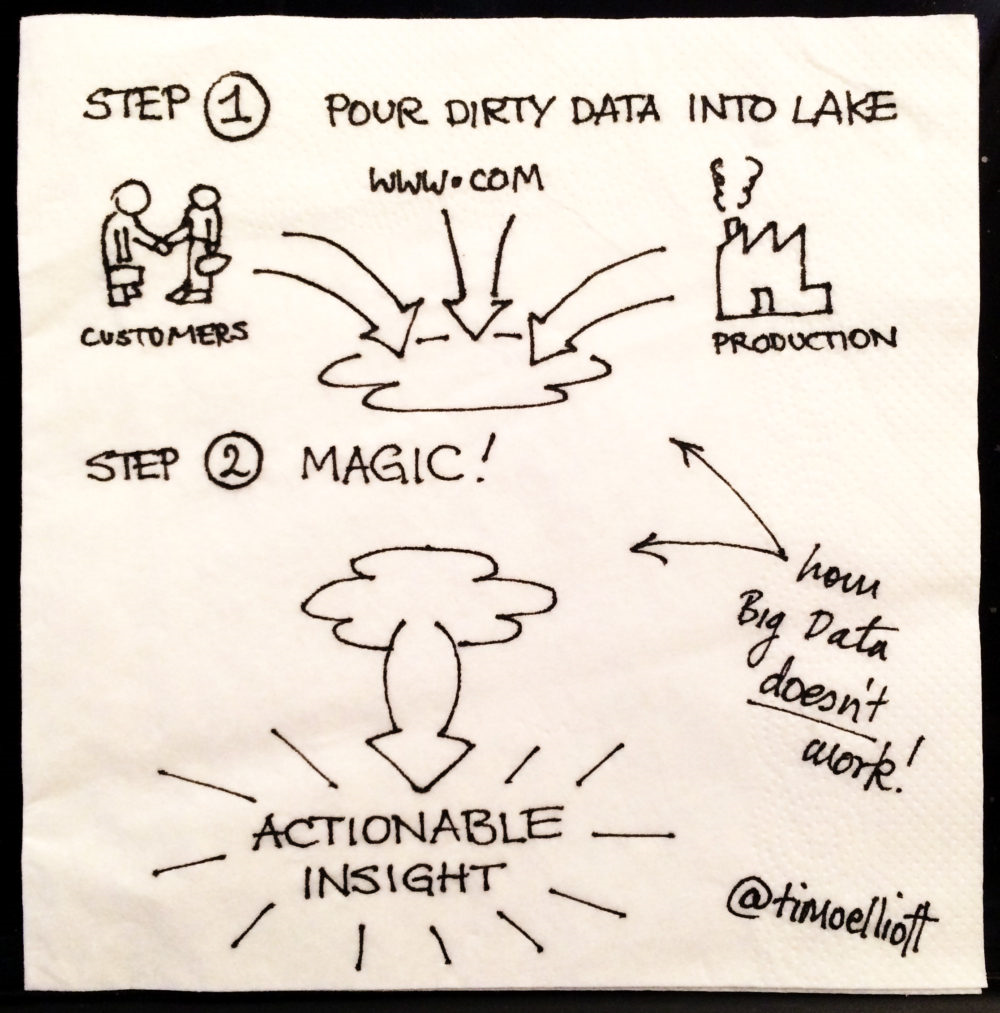 STEP 1 POUR DIRTY DATA INTO LAKE
WWW.COM
CUSTOMERS
PRODUCTION
STEP 2 MAGIC!
how
Big Data
doesn't
work!
ACTIONABLE
INSIGHT
@timoelliott